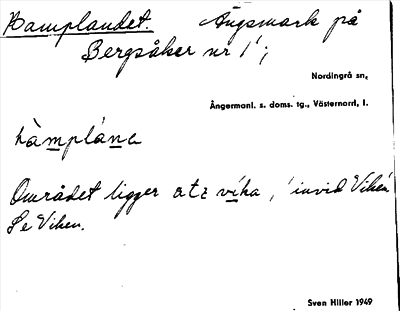 Kamplandet. Ängsmark på
Bergsåker nr 1;
Nordingrå sn,
Ångermanl. s. doms. tg., Västernorrl. l.
kàmplána
Området ligger atz víka, 'invid Viken'
Se Viken.
Sven Hiller 1949